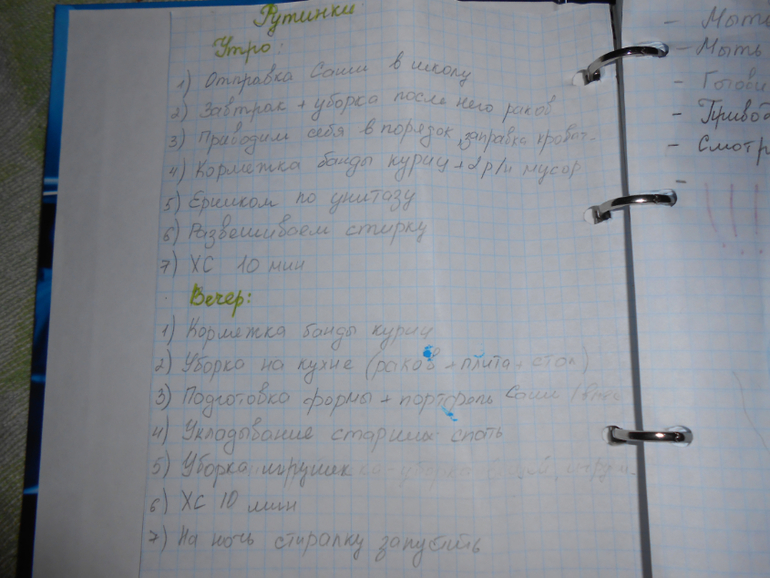 Рутинки
Утро:
1) Отправка Саши в школу
2) Завтрак + уборка после него раков
3) Приводим себя в порядок, заправка кроват.
4) Кормежка банды куриц + 2 р/н мусор
5) Ершиком по унитазу
6) Развешиваем стирку
7) ХС 10 мин
Вечер:
1) Кормежка банды куриц
2) Уборка на кухне (раков + плита + стол)
3) Подготовка формы + портфель Саши
4) Укладывание старших спать
5) Уборка игрушек
6) ХС 10 мин
7) На ночь стиралку запустить
- Мыть
- Мыть
- Готови
- Привод
- Смотр
-